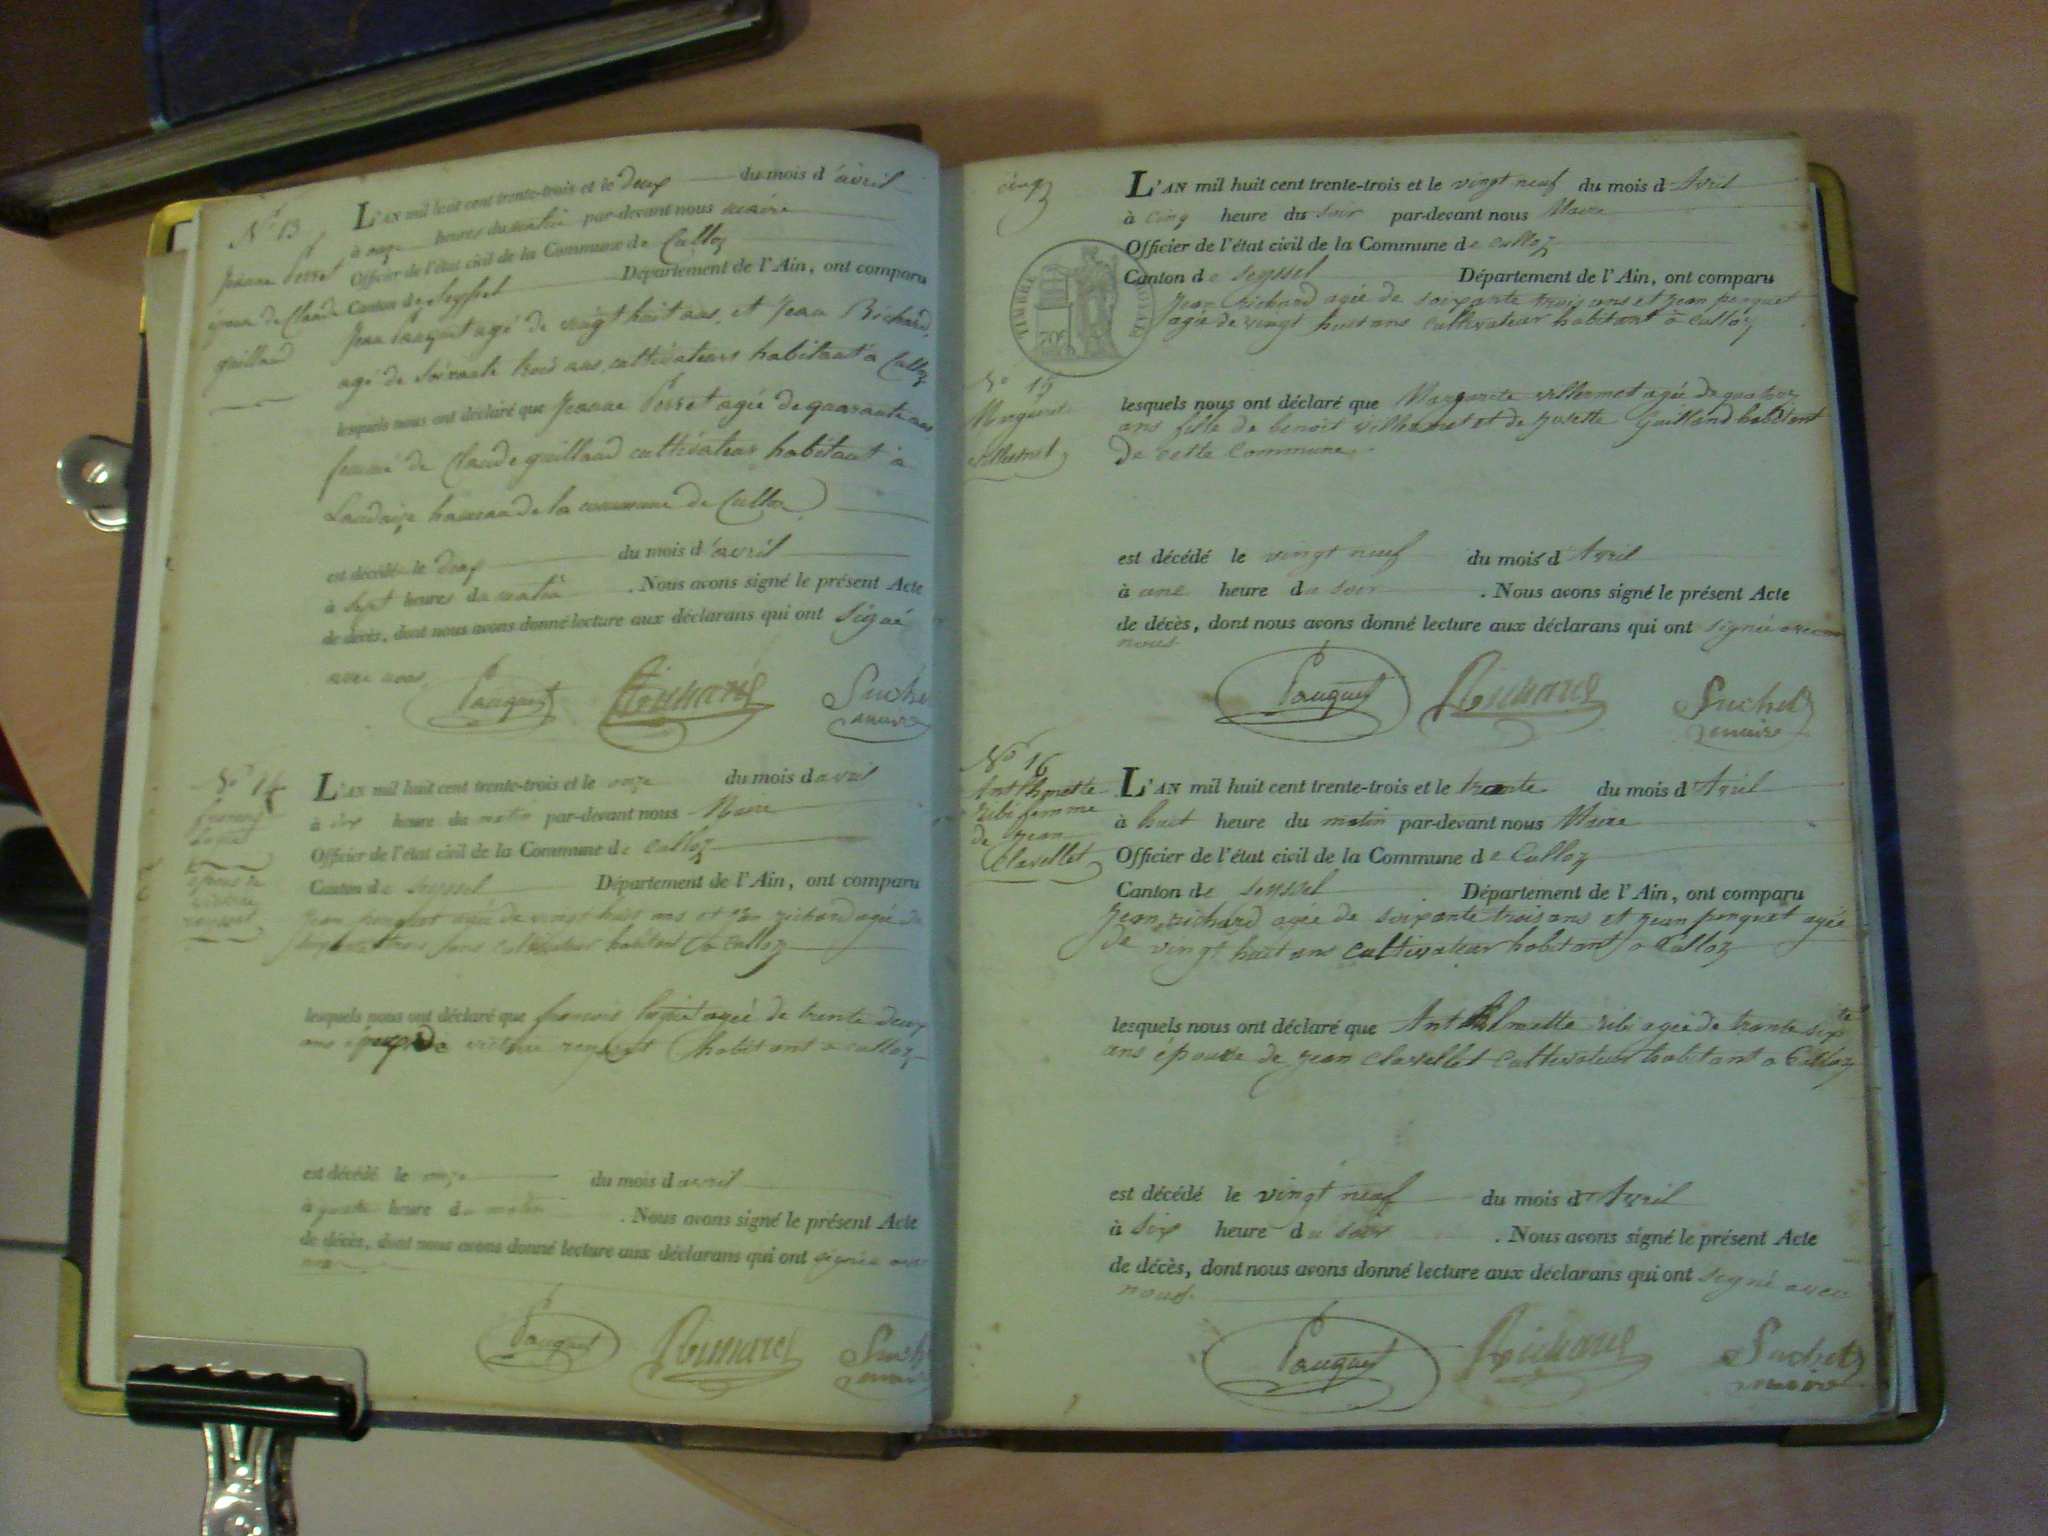 N° 13
Jeanne Perret
épouse de Claude
guilland
L'AN mil huit cent trente-trois et le deux du mois d'avril
à onze heures du matin par-devant nous maire
Officier de l'état civil de la Commune de Culloz
Canton de Seyssel Département de l'Ain, ont comparu
Jean Pauquet agé de vingt huit ans, et Jean Richard,
agé de soixante trois ans, cultivateurs habitant à Culloz
lesquels nous ont déclaré que Jeanne Perret agée de quarante ans
femme de Claude guilland cultivateur habitant à
Landaize hameau de la commune de Culloz
est décédé le deux du mois d'avril
à sept heures du matin . Nous avons signé le présent Acte
de décès, dont nous avons donné lecture aux déclarans qui ont signé
avec nous.
Pauquet Richard Suchet
maire
N° 14
françois
épouse de
victoire
L'AN mil huit cent trente-trois et le onze du mois d avril
à dix heure du matin par-devant nous Maire
Officier de l'état civil de la Commune de Culloz
Canton de Seyssel Département de l'Ain, ont comparu
Jean penquet agée de vingt huit ans et Jean Richard agée de
soixante trois ans cultivateur habitant a Culloz
lesquels nous ont déclaré que francois agée de trente deux
ans époux de victoire habitant a culloz
est décédé le onze du mois d avril
à heure du matin . Nous avons signé le présent Acte
de décès, dont nous avons donné lecture aux déclarans qui ont signée avec
nous
Pauquet Richard Suchet
maire
cinq
TIMBRE ROYAL
N° 15
Marguerit
villermet
L'AN mil huit cent trente-trois et le vingt neuf du mois d Avril
à cinq heure du soir par-devant nous Maire
Officier de l'état civil de la Commune de culloz
Canton de Seyssel Département de l'Ain, ont comparu
Jean Richard agée de soixante trois ans et Jean penquet
agée de vingt huit ans cultivateur habitant à Culloz
lesquels nous ont déclaré que Marguerite villermet agée de quatorz
ans fille de benoit villermet et de Josette Guilland habitant
De cette Commune.
est décédé le vingt neuf du mois d Avril
à une heure du soir . Nous avons signé le présent Acte
de décès, dont nous avons donné lecture aux déclarans qui ont signée avec
nous
Pauquet Richard Suchet
maire
N° 16
Anthelmette
Ribi femme
de Jean
Clavellet
L'AN mil huit cent trente-trois et le trante du mois d'Avril
à huit heure du matin par-devant nous Maire
Officier de l'état civil de la Commune de Culloz
Canton de Seyssel Département de l'Ain, ont comparu
Jean Richard agée de soixante trois ans et Jean penquet agée
De vingt huit ans cultivateur habitant a Culloz
lesquels nous ont déclaré que Anthelmette Ribi agée de trante six
ans épouse de Jean Clavellet cultivateur habitant a Culloz
est décédé le vingt neuf du mois d'Avril
à six heure du soir . Nous avons signé le présent Acte
de décès, dont nous avons donné lecture aux déclarans qui ont signé avec
nous.
Pauquet Richard Suchet
maire